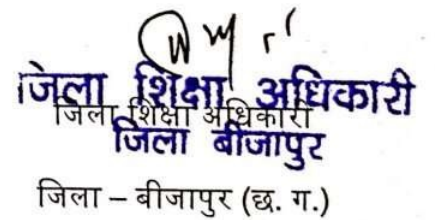 जिला शिक्षा अधिकारी
जिला शिक्षा अधिकारी
जिला बीजापुर
जिला – बीजापुर (छ. ग.)